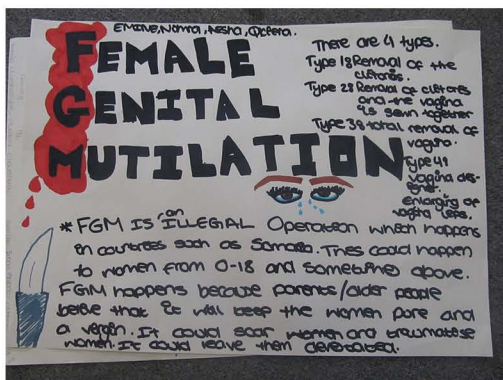 EMINE, Nahra, Aesha,
FEMALE
GENITAL
MUTILATION
There are 4 types.
Type 1: Removal of the
clitores.
Type 2: Removal of clitores
and the vagina
is sewn together
Type 3: total removal of
vagina.
Type 4:
vagina des-
igner.
Enlarging of
vagina lips.
* FGM IS an ILLEGAL Operation which happens
in countries such as Somalia. Thes could happen
to women from 0-18 and sometimes above.
FGM happens because parents/older people
belive that it will keep the women pure and
a vergin. It could scar women and traumatese
women. It could leave them devestated.